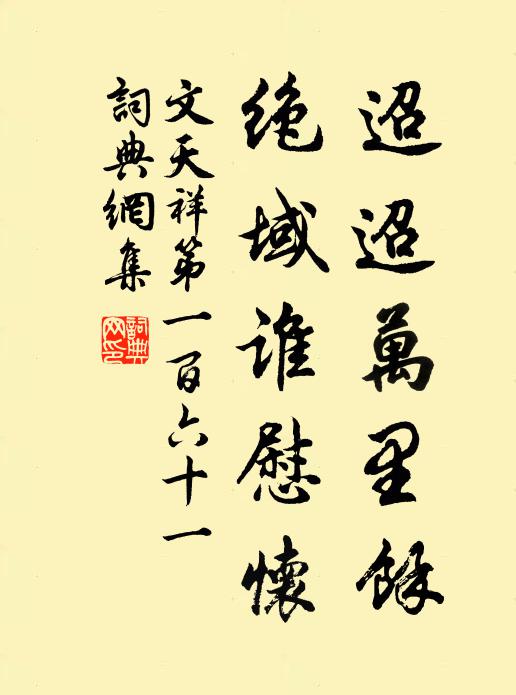 迢迢萬里餘
绝域谁慰懷
文天祥第一百六十一
詞典網集
詞典
网印